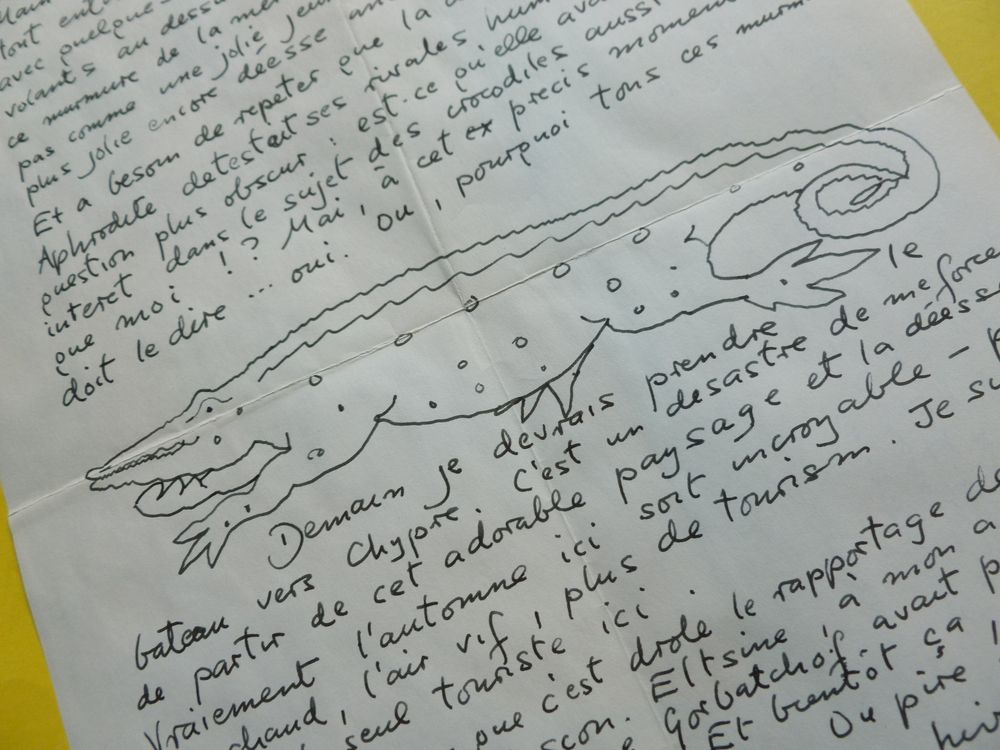 tout
avec quelque
volants au dessu
ce murmure de la mer
pas comme une jolie jeun
plus jolie encore déesse
Et a besoin de repeter que la
Aphrodite detestait ses rivales hum
question plus obscur : est-ce qu'elle ava
interet dans le sujet des crocodiles aussi
que moi !? Mai, à cet ex precis moment
doit le dire ... oui. Ou, pourquoi tous ces murm
Demain je devrais prendre le
bateau vers Chypre. C'est un desastre de me force
de partir de cet adorable paysage et la déesse
Vraiement l'automne ici soit incroyable -
chaud, l'air vif, plus de tourism. Je su
seul touriste ici.
que c'est drole le rapportage de
scon. Eltsine à mon a
Gorbatchof, il avait p
Et bientôt ça
Ou pire